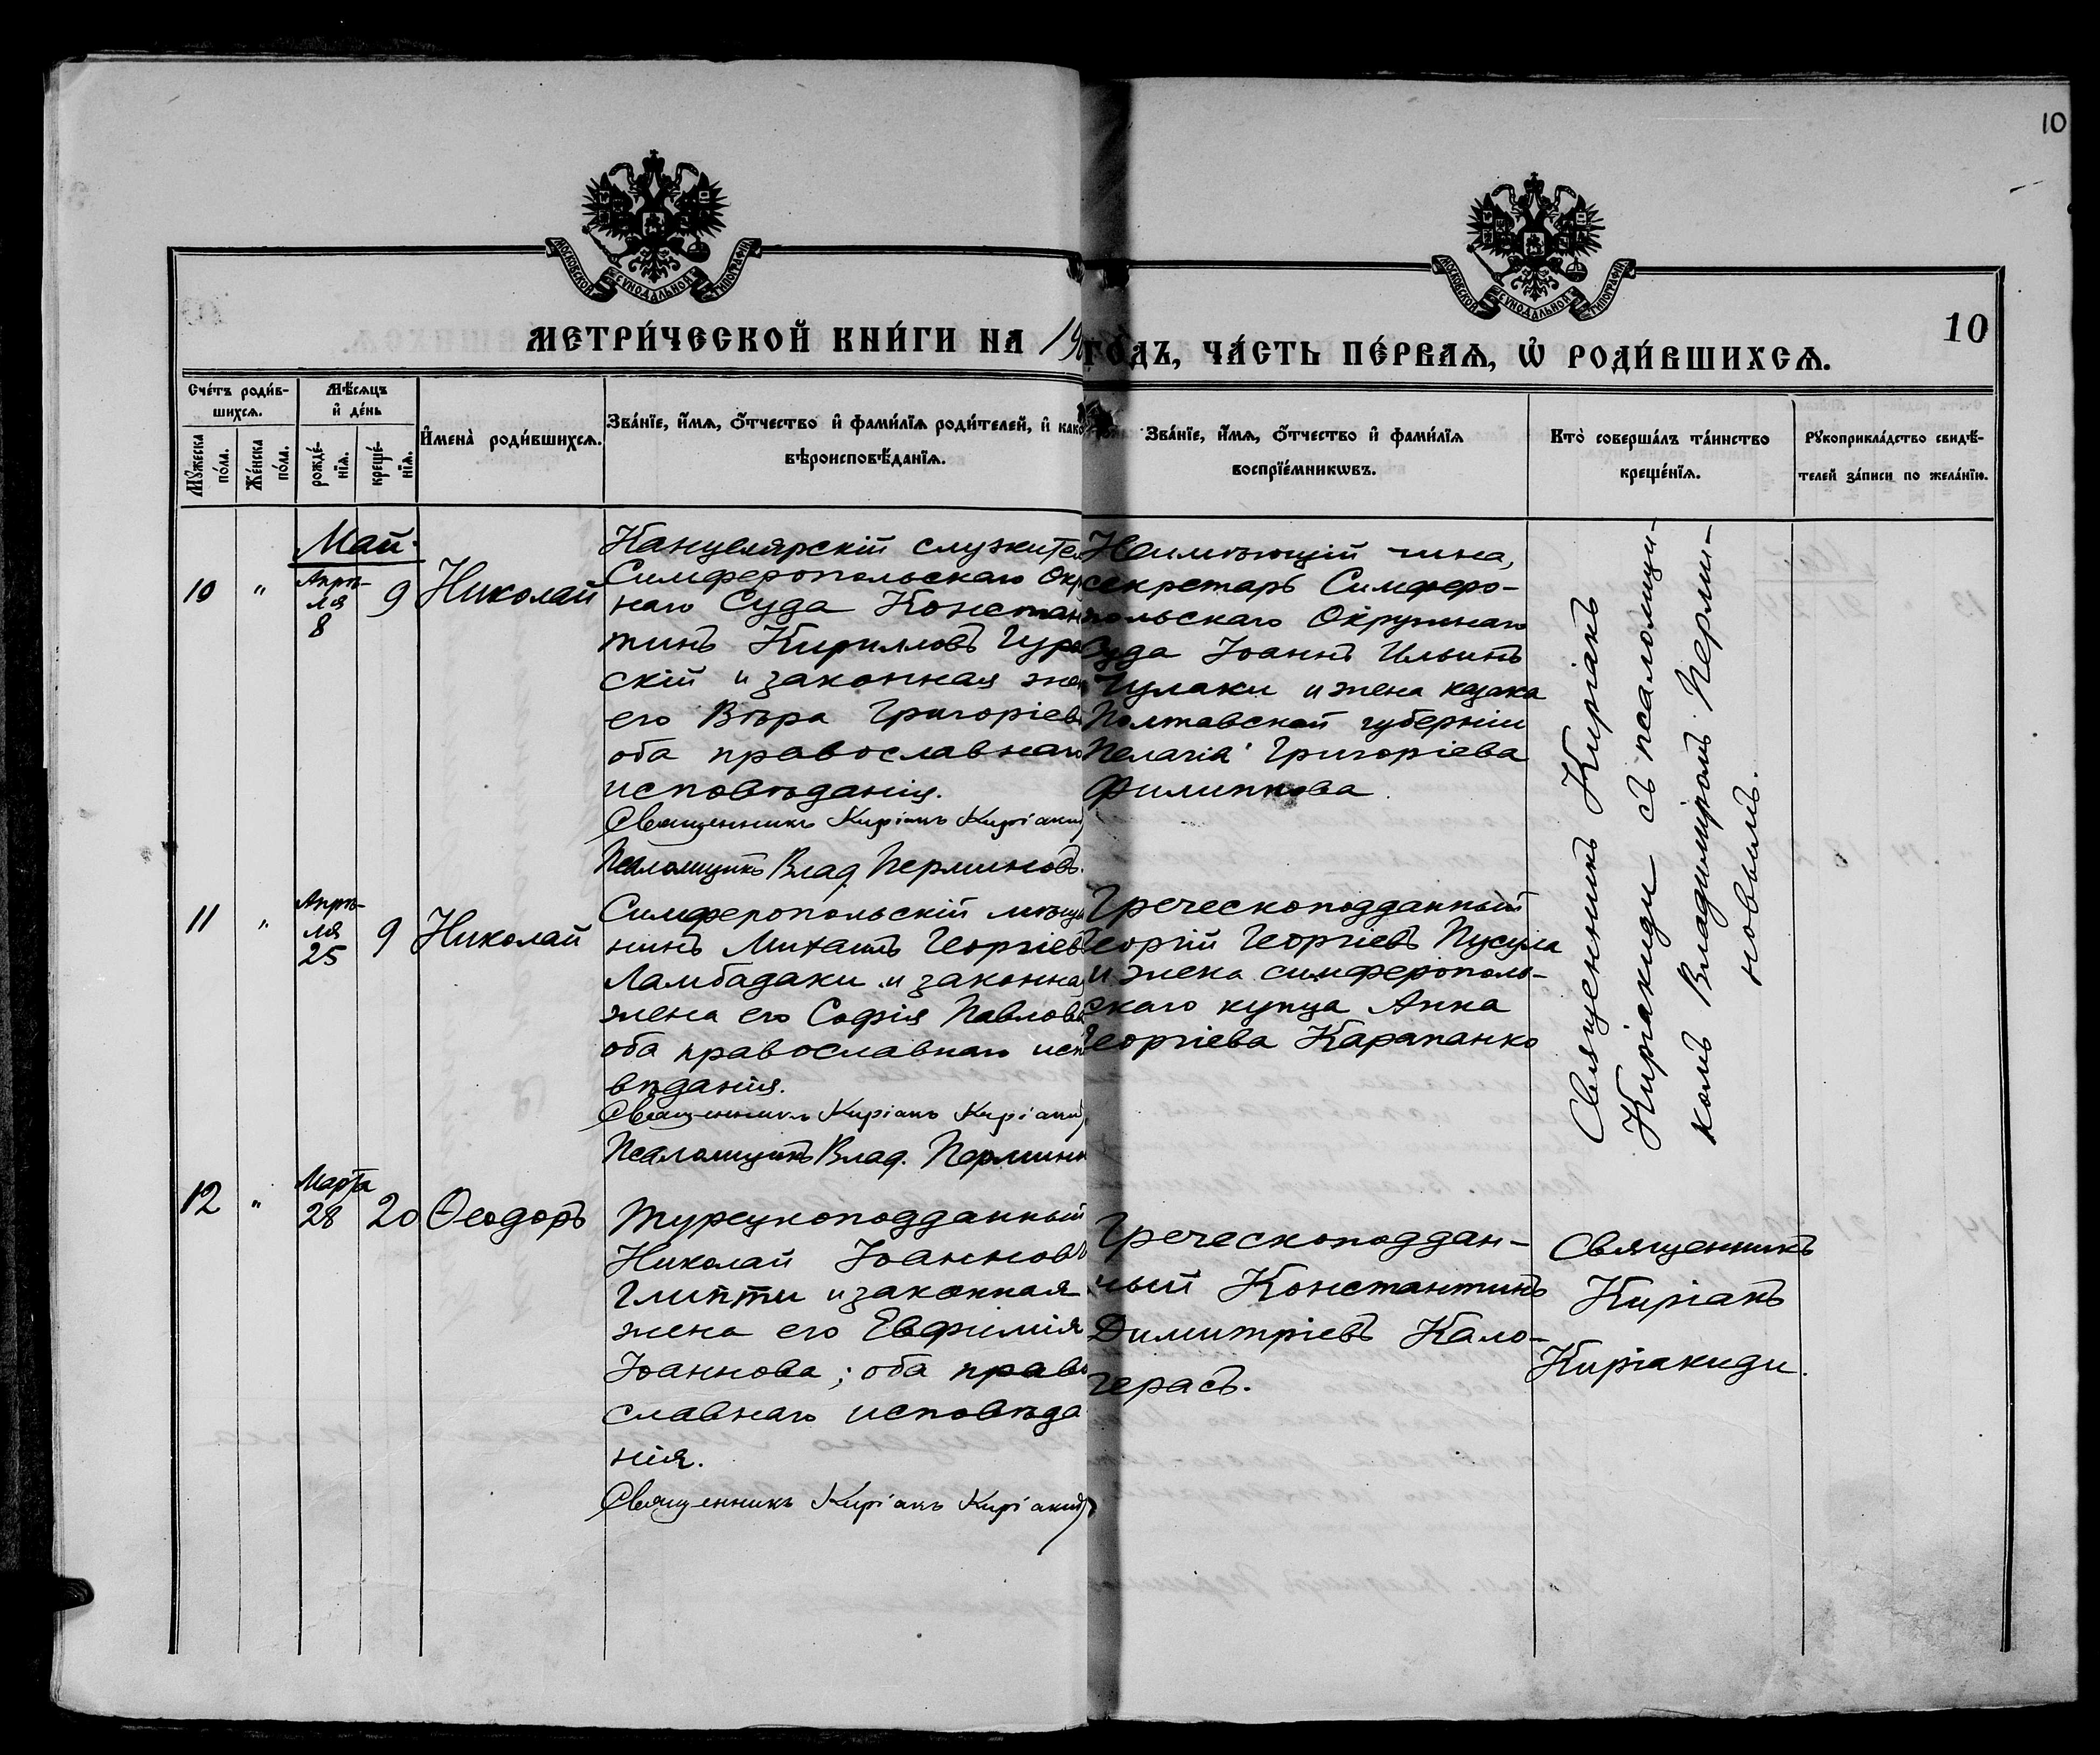 10
МОСКОВСКОЙ СѴНОДАЛЬНОЙ ТИПОГРАФІИ
МОСКОВСКОЙ СѴНОДАЛЬНОЙ ТИПОГРАФІИ
МЕТРИ́ЧЕСКОЙ КНИ́ГИ НА 19
ГО́ДЪ, ЧА́СТЬ ПЕ́РВАѦ, Ѡ҆ РОДИ́ВШИХСѦ.
10
Сче́тъ роди́в-
шихсѧ.
Мꙋжеска по́ла.
Же́нска по́ла.
Мѣ́сѧцъ
и҆ де́нь
рожде́-
нїѧ.
креще́-
нїѧ.
И҆мена̀ роди́вшихсѧ.
Зва́нїе, и҆́мѧ, ѻ҆́тчество и҆ фами́лїѧ роди́телей, и҆ како
вѣроисповѣ́данїѧ.
Зва́нїе, и҆́мѧ, ѻ҆́тчество и҆ фами́лїѧ
воспрїе́мникѡвъ.
Кто̀ соверша́лъ та́инство
креще́нїѧ.
Рꙋкоприкла́дство свидѣ́-
телей за́писи по жела́нїю.
Май.
10 " Апрѣ-
ля
8
9 Николай
Канцелярскій служител
Симферопольскаго Окр
наго Суда Констан
тинъ Кирилловъ
скій и законная жен
его Вѣра Григоріев
оба православнаго
исповѣданія.
Священникъ Киріакъ Киріакид
Псаломщикъ Влад. Перминовъ.
Неимѣющій чина,
секретарь Симферо-
польскаго Окружнаго
Суда Іоаннъ Ильинъ
Гулаки и жена казака
Полтавской губерніи
Пелагія Григоріева
Филиппова
Священникъ Киріакъ
Киріакиди съ псаломщи-
комъ Владиміромъ Перми-
новымъ.
11 " Апрѣ-
ля
25
9 Николай
Симферопольскій мѣща
нинъ Михаилъ Георгіевъ
Ламбадаки и законная
жена его Софія Павлова
оба православнаго испо
вѣданія.
Священникъ Киріакъ Киріакид
Псаломщикъ Влад. Перминов
Греческоподданный
Георгій Георгіевъ Пусула
и жена симферополь-
скаго купца Анна
Георгіева Карапанко
12 " Марта
28
20 Ѳеодоръ
Турецкоподданный
Николай Іоанновъ
Глипти и законная
жена его Евфимія
Іоаннова; оба право
славнаго исповѣда
нія.
Священникъ Киріакъ Киріакид
Греческоподдан-
ный Константинъ
Димитріевъ Кало-
герасъ.
Священникъ
Киріакъ
Киріакиди.